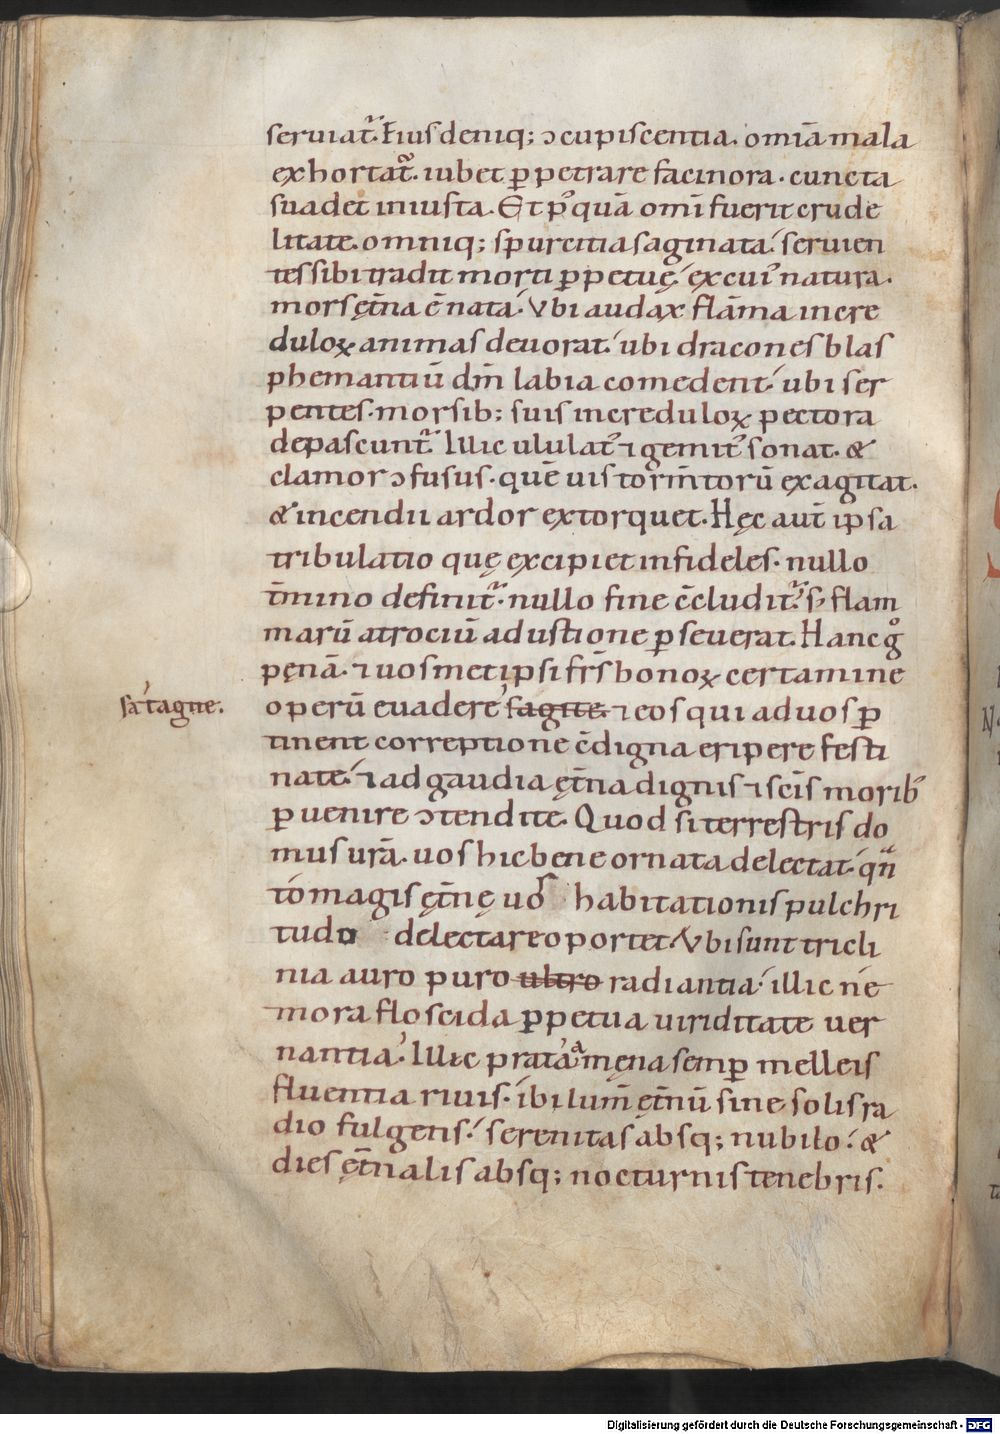 seruiat᷑. Eius deniq; ɔcupiscentia. om̄ia mala
exhortat᷑. iubet ꝑpetrare facinora. cuncta
suadet iniusta. Et p᷒quā omī fuerit crude
litate. omniq; spurcitia saginata. seruien
tes sibi tradit morti ꝑpetuę. ex cui᷒ natura.
mors ęt̄na ē nata. Vbi audax flāma incre
duloꝝ animas deuorat. ubi dracones blas
phemantiū dn̄i labia comedent. ubi ser
pentes. morsib; suis increduloꝝ pectora
depascunt᷑. Illic ululat᷒ ⁊ gemit᷒ sonat. &
clamor ɔfusus. quē uis torm̄torū exagitat.
& incendii ardor extorquet. Hęc aut̄ ipsa
tribulatio quę excipiet infideles. nullo
t̄mino definit᷑. nullo fine c̄cludit᷑. s; flam
marū atrociū adustione ꝑseuerat. Hanc gͦ
pęnā. ⁊ uosmet ipsi frs̄ bonoꝝ certamine
sa tagite.
operū euadere sagite. ⁊ eos qui ad uos ꝑ
tinent correptione c̄digna eripere festi
nate. ⁊ ad gaudia ęt̄na dignis ⁊ sc̄is morib᷒
ꝑuenire ɔtendite. Quod si terrestris do
mus urā. uos hic bene ornata delectat. qn̄
to magis ęt̄nę uos habitationis pulchri
tudo delectare oportet. Vbi sunt tricli
nia auro puro ultro radiantia. illic ne
mora floscida ꝑpetua uiriditate uer
nantia. Illic prata amęna semꝑ melleis
fluentia riuis. ibi lum̄ ęt̄nū sine solis ra
dio fulgens. serenitas absq; nubilo. &
dies ęt̄nalis absq; nocturnis tenebris.
Digitalisierung gefördert durch die Deutsche Forschungsgemeinschaft - DFG